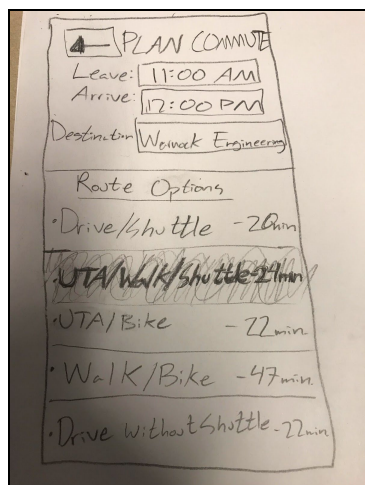 PLAN COMMUTE
Leave: 11:00 AM
Arrive: 12:00 PM
Destination Warnock Engineering
Route Options
·Drive/Shuttle -20min
·UTA/Walk/Shuttle-24min
·UTA/Bike -22min
·Walk/Bike -47min
·Drive Without Shuttle -22min